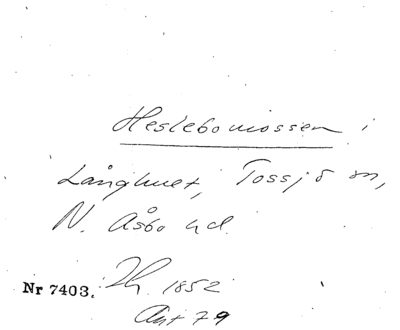 Heslebomossen i
Långhult, Tossjö sn,
N. Åsbo hd.
Nr 7403. 1852
Ant 79